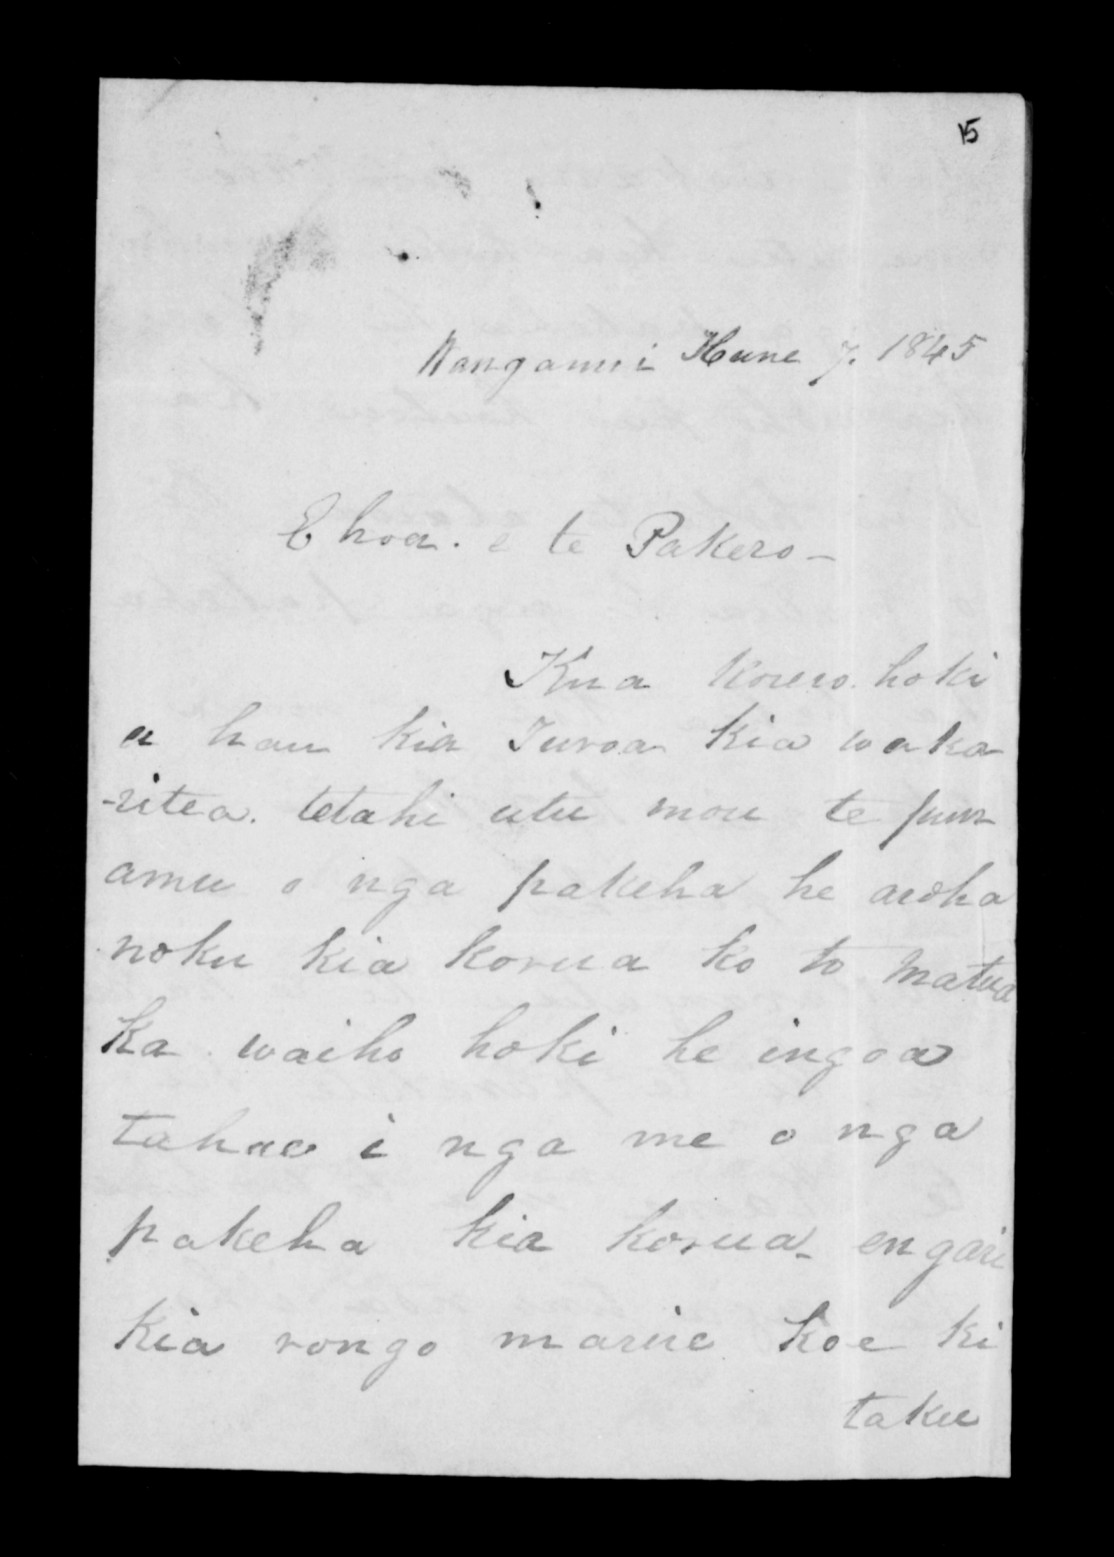 15
Wanganui Hune 7. 1845
E hoa. e te Pakero -
Kua korero. hoki
a hau kia Turoa kia waka
-ritea. tetahi utu mou te pun
amu o nga pakeha he aroha
noku kia korua ko to matua
ka waiho hoki he ingoa
tahae i nga me o nga
pakeha kia korua - engari
kia rongo marire koe ki
taku